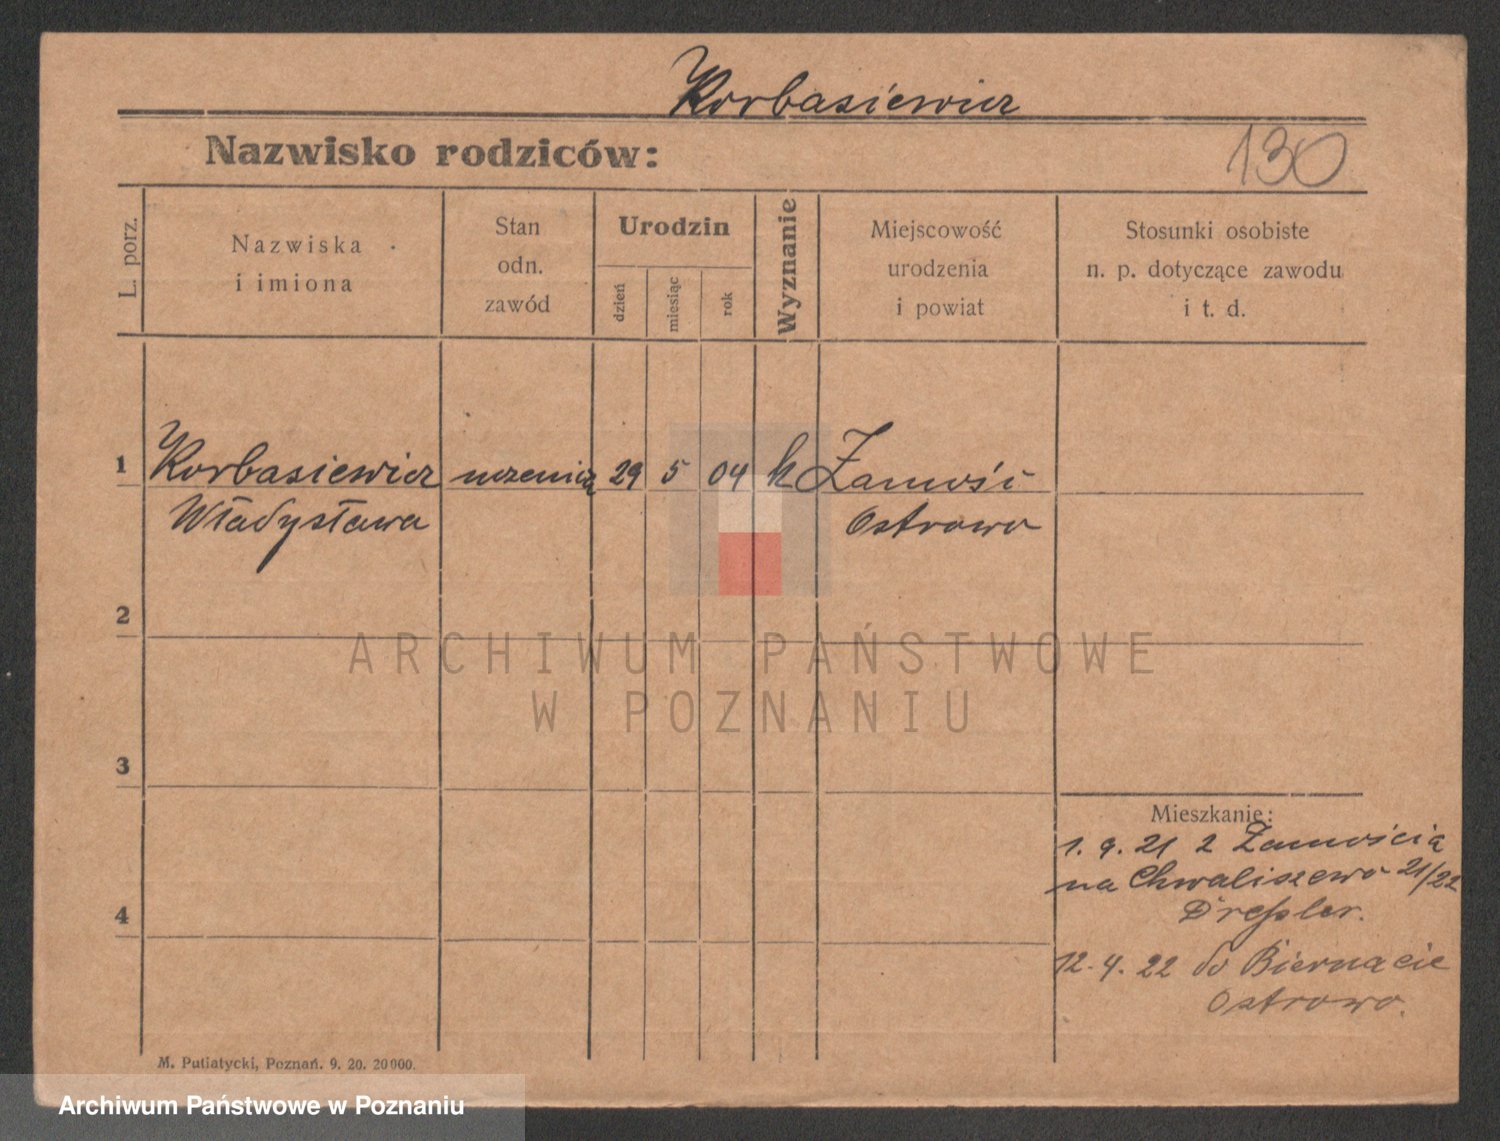 Korbasiewicz
Nazwisko rodziców:
130
L. porz.
Nazwiska
i imiona
Stan
odn.
zawód
Urodzin
dzień
miesiąc
rok
Wyznanie
Miejscowość
urodzenia
i powiat
Stosunki osobiste
n. p. dotyczące zawodu
i t. d.
1 Korbasiewicz uczenica 29 5 04 k Zamość
Władysława Ostrowo
2
3
4
Mieszkanie:
1. 9. 21 z Zamościa
na Chwaliszewo 21/22
Dressler.
12. 4. 22 do Biernacie
Ostrowo.
M. Putiatycki, Poznań. 9. 20. 20000.
ARCHIWUM PAŃSTWOWE
W POZNANIU
Archiwum Państwowe w Poznaniu